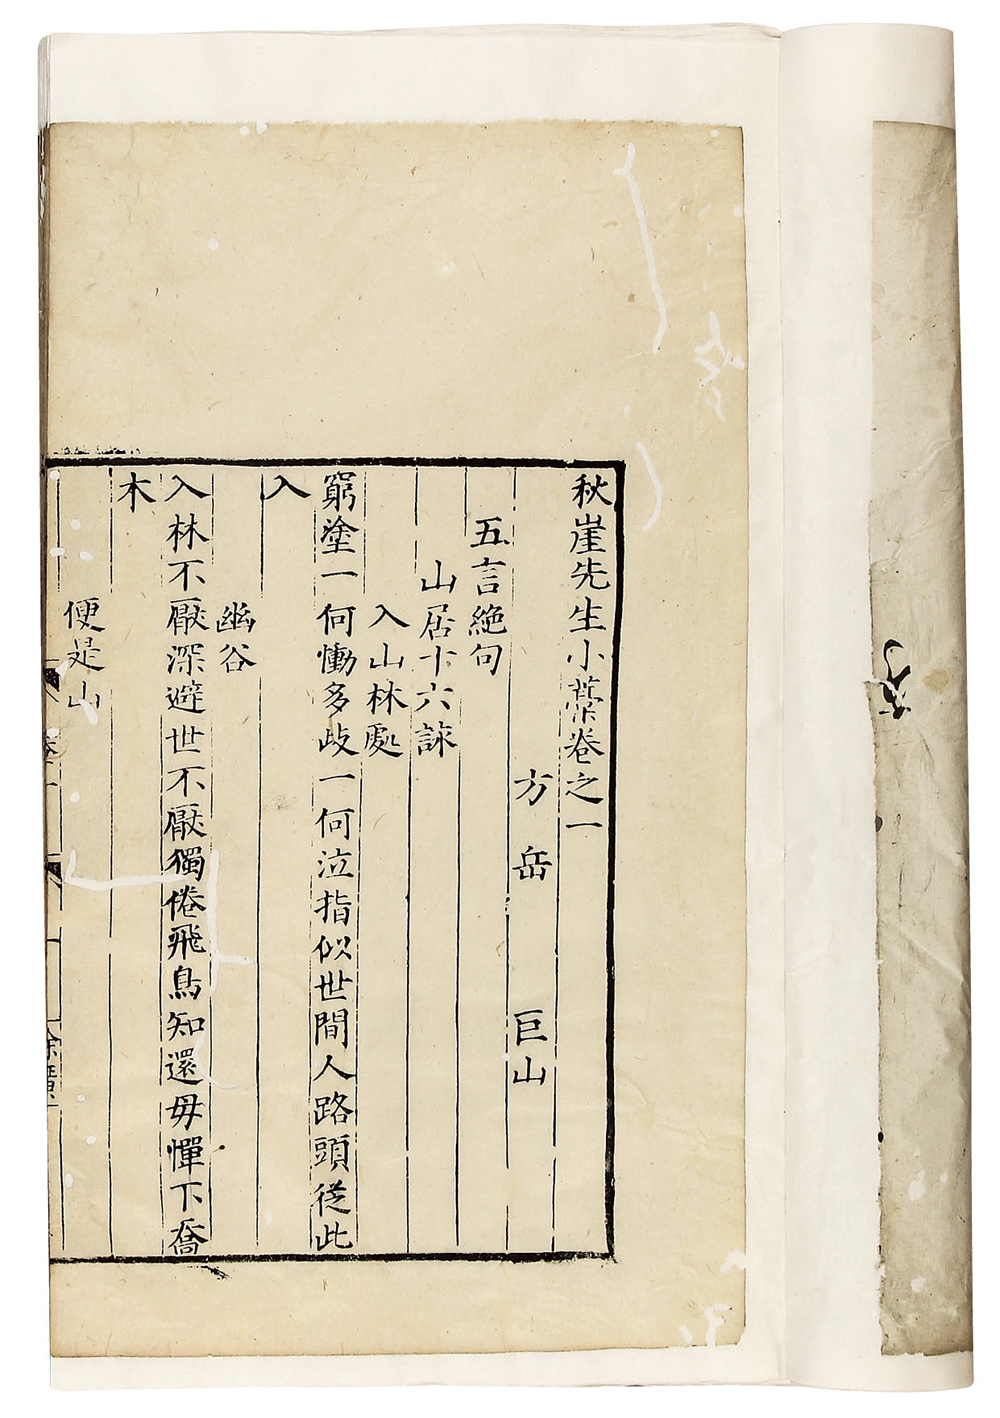 秋崖先生小藁卷之一
方岳 巨山
五言絶句
山居十六詠
入山林處
窮塗一何慟多歧一何泣指似世間人路頭從此
入
幽谷
入林不厭深避世不厭獨倦飛鳥知還毋憚下喬
木
便是山